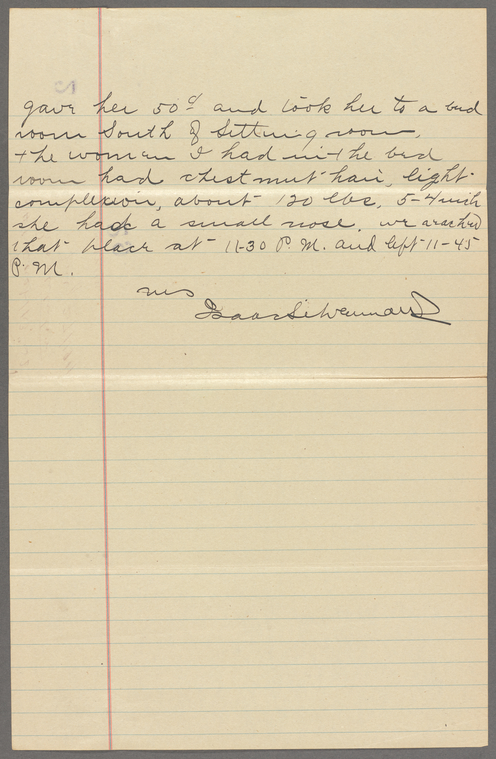 gave her 50¢ and took her to a bed
room South of Sitting room,
the woman I had in the bed
room had chestnut hair, light
complexion, about 120 lbs, 5-4 inch
she had a small nose, we reached
that place at 11-30 P.M. and left 11-45
P.M.
Isaac Silverman